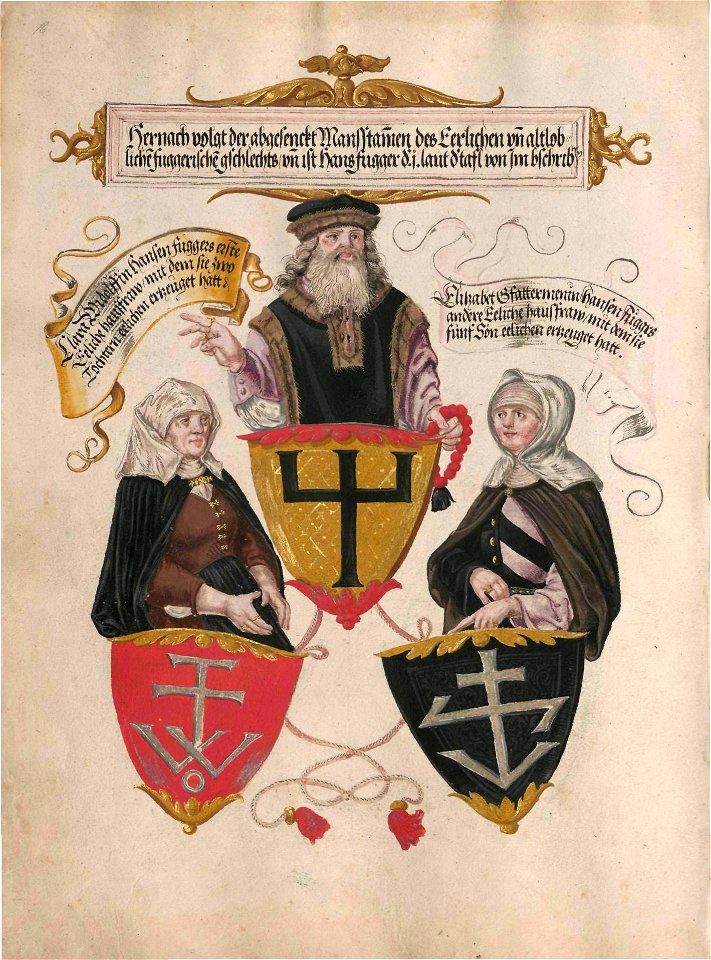 Hernach volgt der abgesenckt Mansstam̃en des Eerlichen vn̄ altlob-
lichē fuggerischē gschlechts, vn̄ ist Hans fugger d. j. laut d tafl von Im bschribē
Clara Widolffin Hansen fuggers erste
Eeliche hausfraw, mit dem sie zwo
Töchtern eelichen erzeuget hatt.
Elisabet Gfattermenin hansen fuggers
andere Eeliche hausfraw, mit dem sie
fünf Sön eelichen erzeuget hatt.